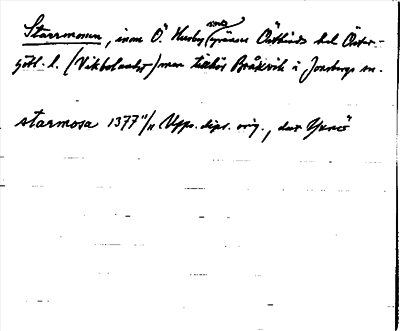 Starrmossen, inom Ö. Husby (vid gränsen Östkinds hd, Öster-
götl. l. (Vikbolandet) men tillhör Bråkvik i Jonsbergs sn.
starmosa 1377 11/11 Uppo. dipl. orig., dat